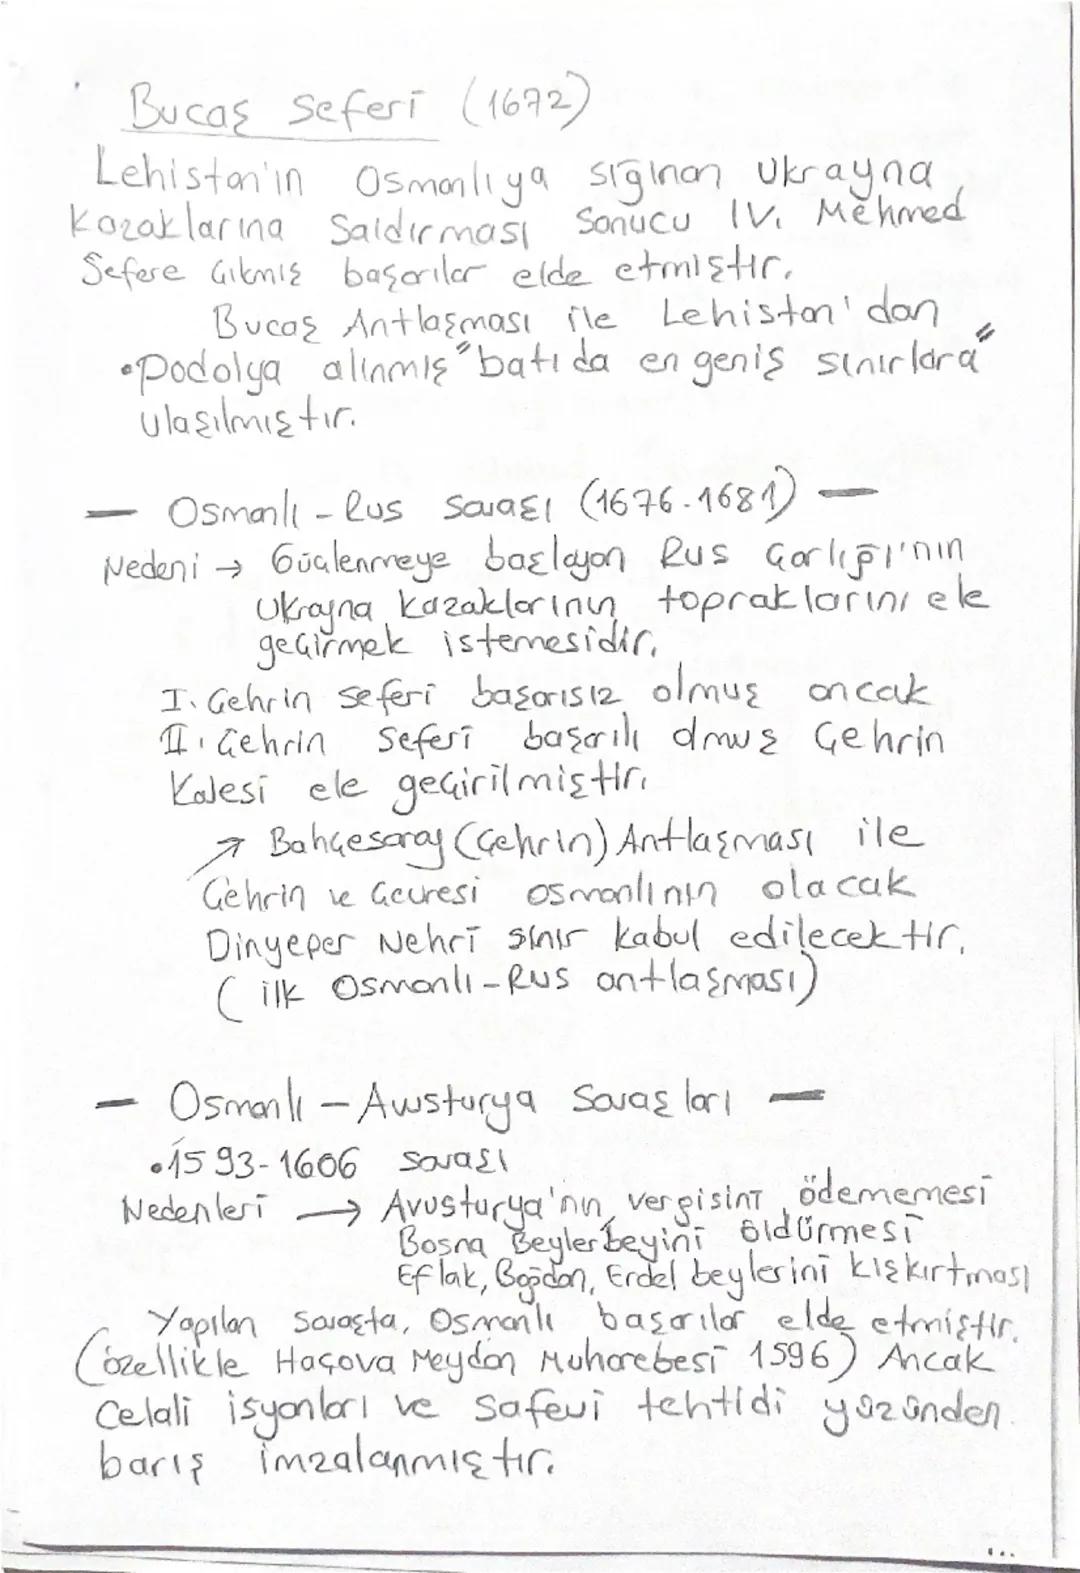 Bucaş seferi (1672)
Lehistan'ın Osmanlıya sığınan Ukrayna
Kazaklarına Saldırması Sonucu IV. Mehmed
Sefere Çıkmış başarılar elde etmiştir.
Bucaş Antlaşması ile Lehistan'dan
•Podolya alınmış "batıda en geniş sınırlara"
ulaşılmıştır.
— Osmanlı - Rus savaşı (1676-1681) —
Nedeni → Güçlenmeye başlayan Rus Çarlığı'nın
Ukrayna Kazaklarının topraklarını ele
geçirmek istemesidir.
I. Çehrin seferi başarısız olmuş ancak
II. Çehrin Seferi başarılı olmuş Çehrin
Kalesi ele geçirilmiştir.
↗ Bahçesaray (Çehrin) Antlaşması ile
Çehrin ve Çevresi osmanlının olacak
Dinyeper Nehri sınır kabul edilecektir.
( ilk Osmanlı - Rus antlaşması)
— Osmanlı - Avusturya Savaşları —
•1593-1606 savaşı
Nedenleri → Avusturya'nın vergisini ödememesi
Bosna Beylerbeyini öldürmesi
Eflak, Boğdan, Erdel beylerini kışkırtması
Yapılan savaşta, Osmanlı başarılar elde etmiştir.
(özellikle Haçova Meydan Muharebesi 1596) Ancak
Celali isyanları ve Safevi tehtidi yüzünden
barış imzalanmıştır.